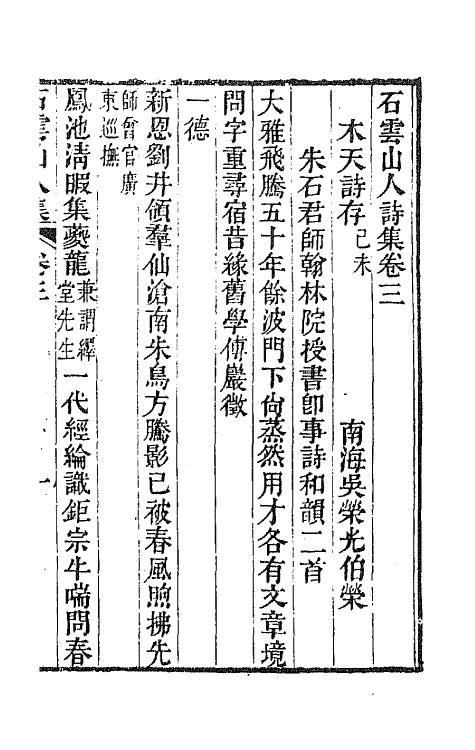 石雲山人詩集卷三
木天詩存 己未
南海吳榮光伯榮
朱石君師翰林院授書卽事詩和韻二首
大雅飛騰五十年餘波門下尙蒸然用才各有文章境
問字重尋宿昔緣舊學傅巖徵
一德
新恩劉井領羣仙滄南朱鳥方騰影已被春風煦拂先
師曾官廣
東巡撫
鳳池淸暇集夔龍
兼謂繹
堂先生
一代經綸識鉅宗牛喘問春
石雲山人集
卷三